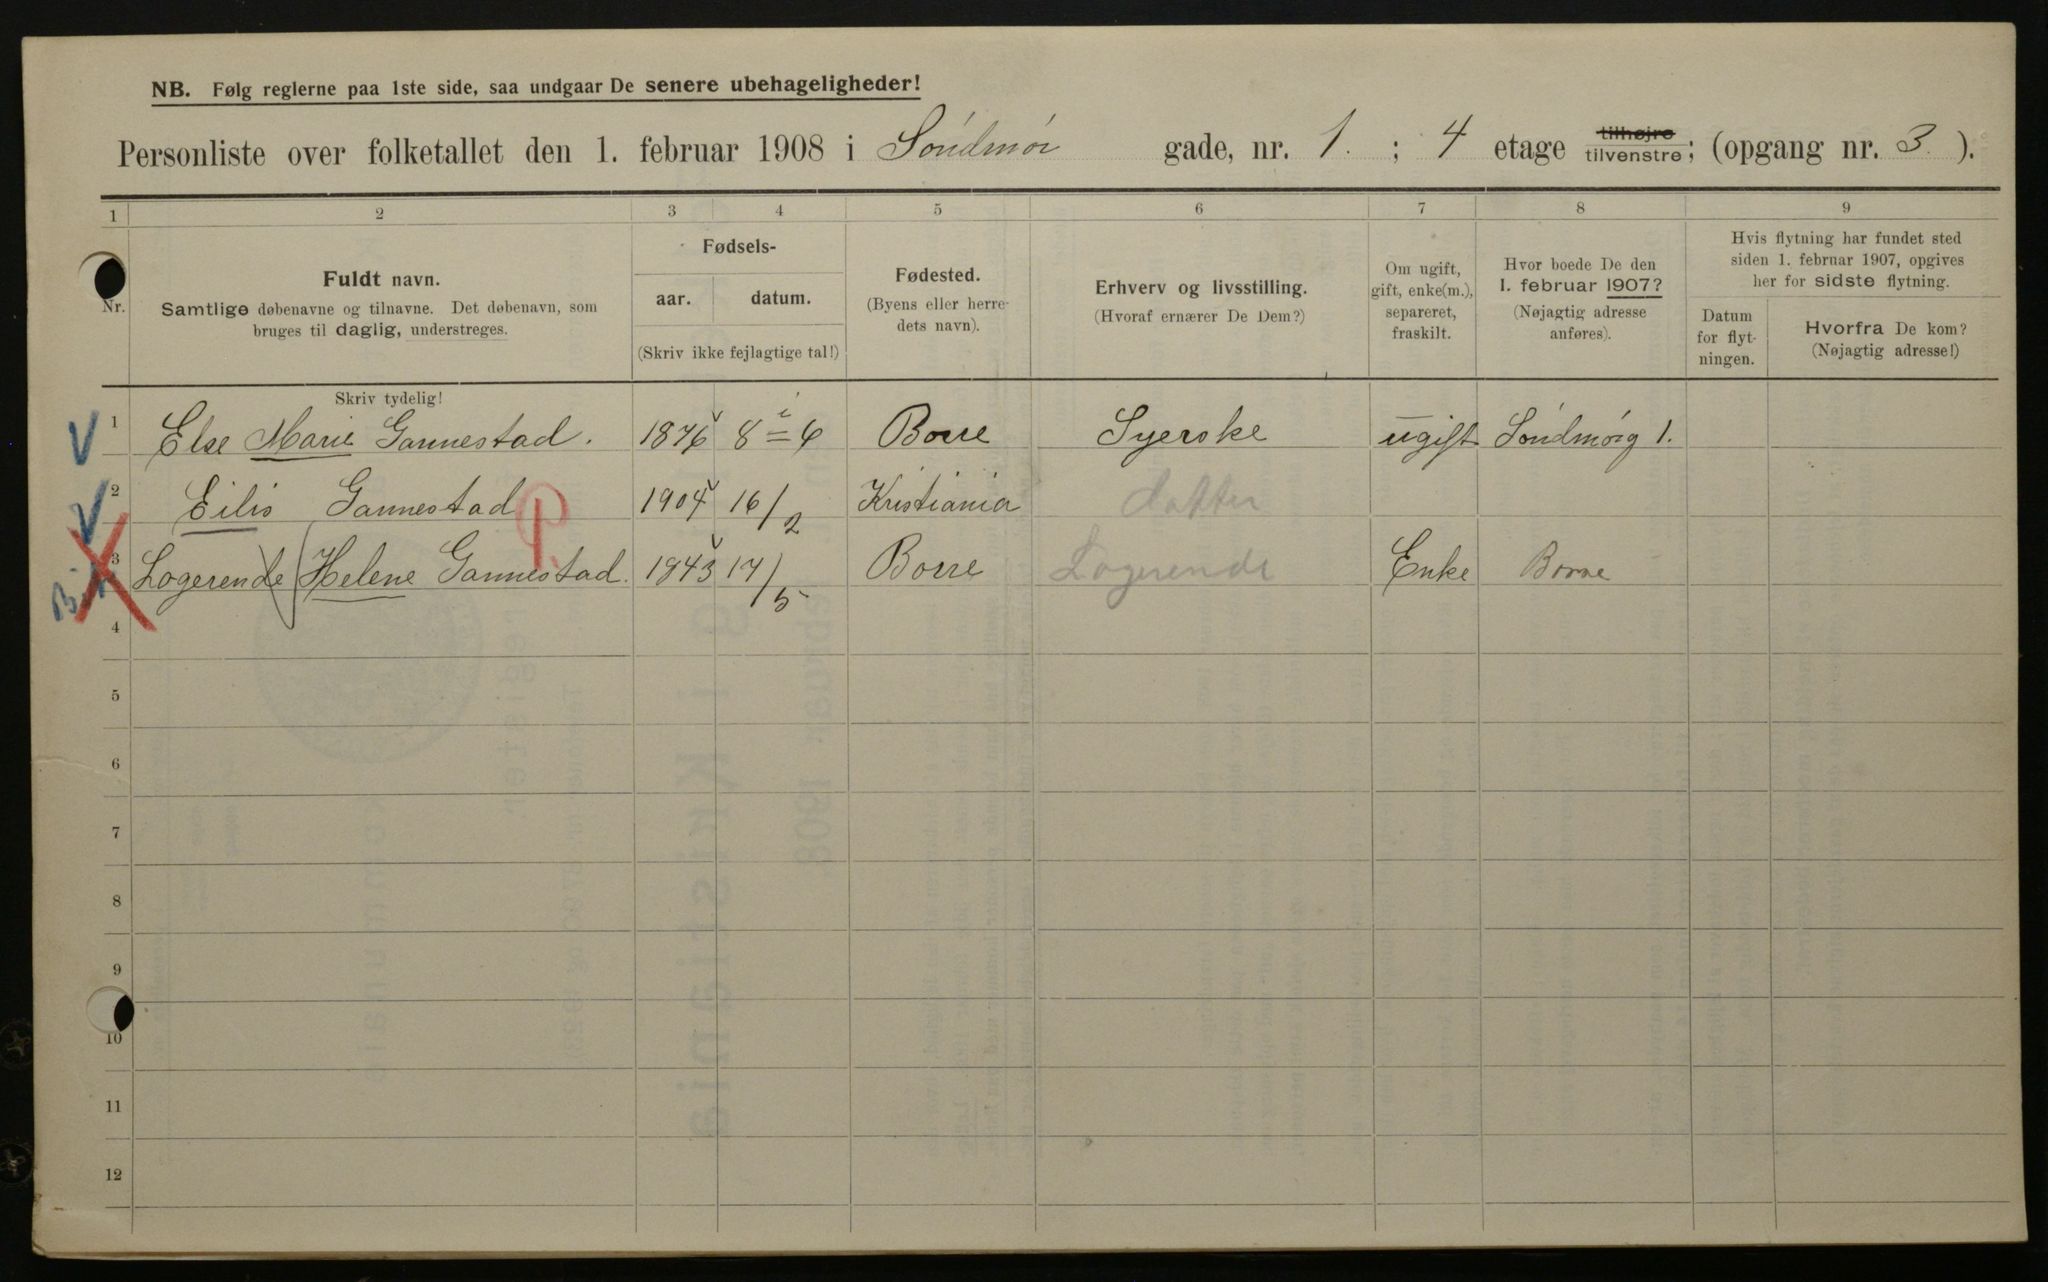 NB. Følg reglerne paa 1ste side, saa undgaar De senere ubehageligheder!
Personliste over folketallet den 1. februar 1908 i Søndmør gade, nr. 1. ; 4 etage tilhøjre tilvenstre; (opgang nr. 3. ).
1 2 3 4 5 6 7 8 9
Nr.
Fuldt navn.
Samtlige døbenavne og tilnavne. Det døbenavn, som
bruges til daglig, understreges.
Fødsels-
aar. datum.
(Skriv ikke fejlagtige tal!)
Fødested.
(Byens eller herre-
dets navn).
Erhverv og livsstilling.
(Hvoraf ernærer De Dem?)
Om ugift,
gift, enke(m.),
separeret,
fraskilt.
Hvor boede De den
1. februar 1907?
(Nøjagtig adresse
anføres).
Hvis flytning har fundet sted
siden 1. februar 1907, opgives
her for sidste flytning.
Datum
for flyt-
ningen.
Hvorfra De kom?
(Nøjagtig adresse!)
Skriv tydelig!
1 Else Marie Gannestad. 1876 8=6 Borre Syerske ugift Søndmørg 1.
2 Eilis Gannestad 1904 16/2 Kristiania datter
3 Logerende Helene Gannestad. 1843 17/5 Borre Logerende Enke Borre
4
5
6
7
8
9
10
11
12